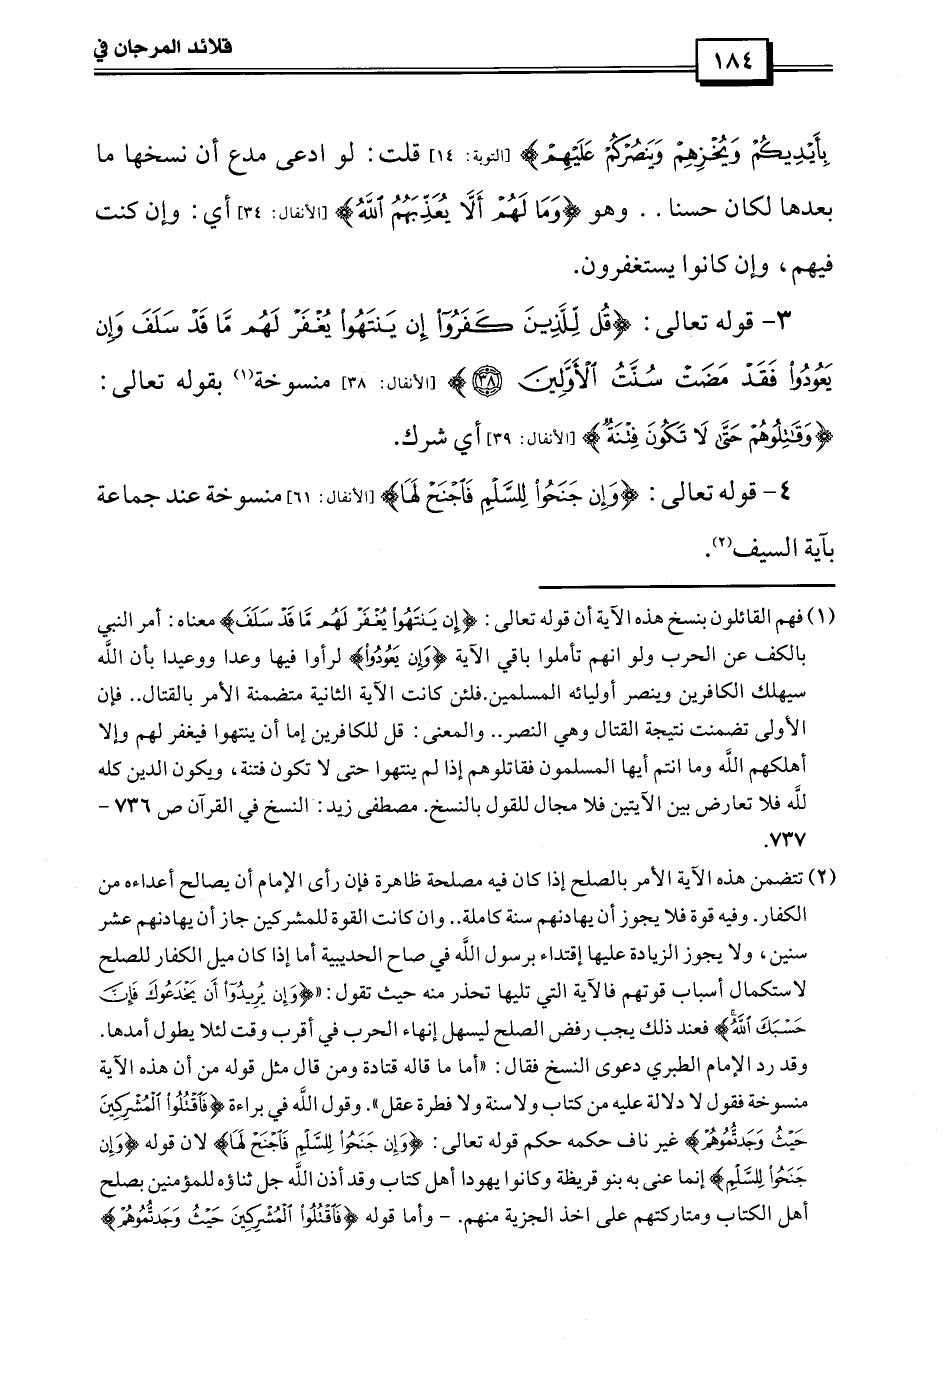 قلائد المرجان في
١٨٤
بِأَيْدِيكُمْ وَيُخْزِهِمْ وَيَنصُرْكُمْ عَلَيْهِمْ﴾ [التوبة: ١٤] قلت: لو ادعى مدع أن نسخها ما
بعدها لكان حسنا . . وهو ﴿وَمَا لَهُمْ أَلَّا يُعَذِّبَهُمُ ٱللَّهُ﴾ [الأنفال: ٣٤] أي: وإن كنت
فيهم، وإن كانوا يستغفرون.
٣- قوله تعالى: ﴿قُل لِّلَّذِينَ كَفَرُوٓا۟ إِن يَنتَهُوا۟ يُغْفَرْ لَهُم مَّا قَدْ سَلَفَ وَإِن
يَعُودُوا۟ فَقَدْ مَضَتْ سُنَّتُ ٱلْأَوَّلِينَ ٣٨﴾ [الأنفال: ٣٨] منسوخة(١) بقوله تعالى:
﴿وَقَٰتِلُوهُمْ حَتَّىٰ لَا تَكُونَ فِتْنَةٌ﴾ [الأنفال: ٣٩] أي شرك.
٤- قوله تعالى: ﴿وَإِن جَنَحُوا۟ لِلسَّلْمِ فَٱجْنَحْ لَهَا﴾ [الأنفال: ٦١] منسوخة عند جماعة
بآية السيف(٢).
(١) فهم القائلون بنسخ هذه الآية أن قوله تعالى: ﴿إِن يَنتَهُوا۟ يُغْفَرْ لَهُم مَّا قَدْ سَلَفَ﴾ معناه: أمر النبي
بالكف عن الحرب ولو انهم تأملوا باقي الآية ﴿وَإِن يَعُودُوا۟﴾ لرأوا فيها وعدا ووعيدا بأن الله
سيهلك الكافرين وينصر أوليائه المسلمين.فلئن كانت الآية الثانية متضمنة الأمر بالقتال.. فإن
الأولى تضمنت نتيجة القتال وهي النصر.. والمعنى: قل للكافرين إما أن ينتهوا فيغفر لهم وإلا
أهلكهم الله وما انتم أيها المسلمون فقاتلوهم إذا لم ينتهوا حتى لا تكون فتنة، ويكون الدين كله
لله فلا تعارض بين الآيتين فلا مجال للقول بالنسخ. مصطفى زيد: النسخ في القرآن ص ٧٣٦ -
٧٣٧.
(٢) تتضمن هذه الآية الأمر بالصلح إذا كان فيه مصلحة ظاهرة فإن رأى الإمام أن يصالح أعداءه من
الكفار. وفيه قوة فلا يجوز أن يهادنهم سنة كاملة.. وان كانت القوة للمشركين جاز أن يهادنهم عشر
سنين، ولا يجوز الزيادة عليها إقتداء برسول الله في صاح الحديبية أما إذا كان ميل الكفار للصلح
لاستكمال أسباب قوتهم فالآية التي تليها تحذر منه حيث تقول: «﴿وَإِن يُرِيدُوٓا۟ أَن يَخْدَعُوكَ فَإِنَّ
حَسْبَكَ ٱللَّهُ﴾ فعند ذلك يجب رفض الصلح ليسهل إنهاء الحرب في أقرب وقت لئلا يطول أمدها.
وقد رد الإمام الطبري دعوى النسخ فقال: «أما ما قاله قتادة ومن قال مثل قوله من أن هذه الآية
منسوخة فقول لا دلالة عليه من كتاب ولا سنة ولا فطرة عقل». وقول الله في براءة ﴿فَٱقْتُلُوا۟ ٱلْمُشْرِكِينَ
حَيْثُ وَجَدتُّمُوهُمْ﴾ غير ناف حكمه حكم قوله تعالى: ﴿وَإِن جَنَحُوا۟ لِلسَّلْمِ فَٱجْنَحْ لَهَا﴾ لان قوله ﴿وَإِن
جَنَحُوا۟ لِلسَّلْمِ﴾ إنما عنى به بنو قريظة وكانوا يهودا أهل كتاب وقد أذن الله جل ثناؤه للمؤمنين بصلح
أهل الكتاب ومتاركتهم على اخذ الجزية منهم. - وأما قوله ﴿فَٱقْتُلُوا۟ ٱلْمُشْرِكِينَ حَيْثُ وَجَدتُّمُوهُمْ﴾